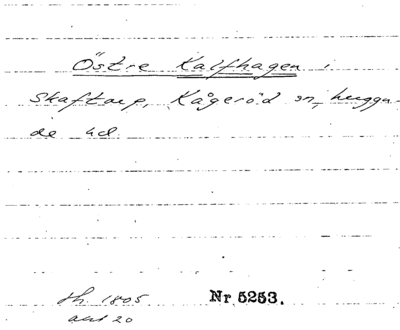 Östre Kalfhagen i
Skaftarp, Kågeröd sn, Luggu-
de hd.
sh. 1805
akt 20
Nr 5253.